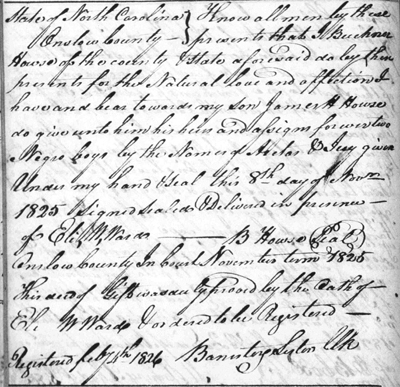 State of North Carolina } Know all men by these
Onslow County — } presents that I
House of the county & State aforesaid do by these
presents for the Natural love and affection I
have and bear towards my son James H House
do give unto him his heirs and assigns forever two
Negro boys by the Names of & given
Under my hand & Seal this 8th day of Novr
1825 Signed Sealed & Delivered in presence —
of Eli W Ward — B House (Seal)
Onslow County In Court November term 1825
This deed of Gift was duly proved by the Oath of
Eli W Ward & ordered to be Registered —
Registered Feb 7th 1826 Clk